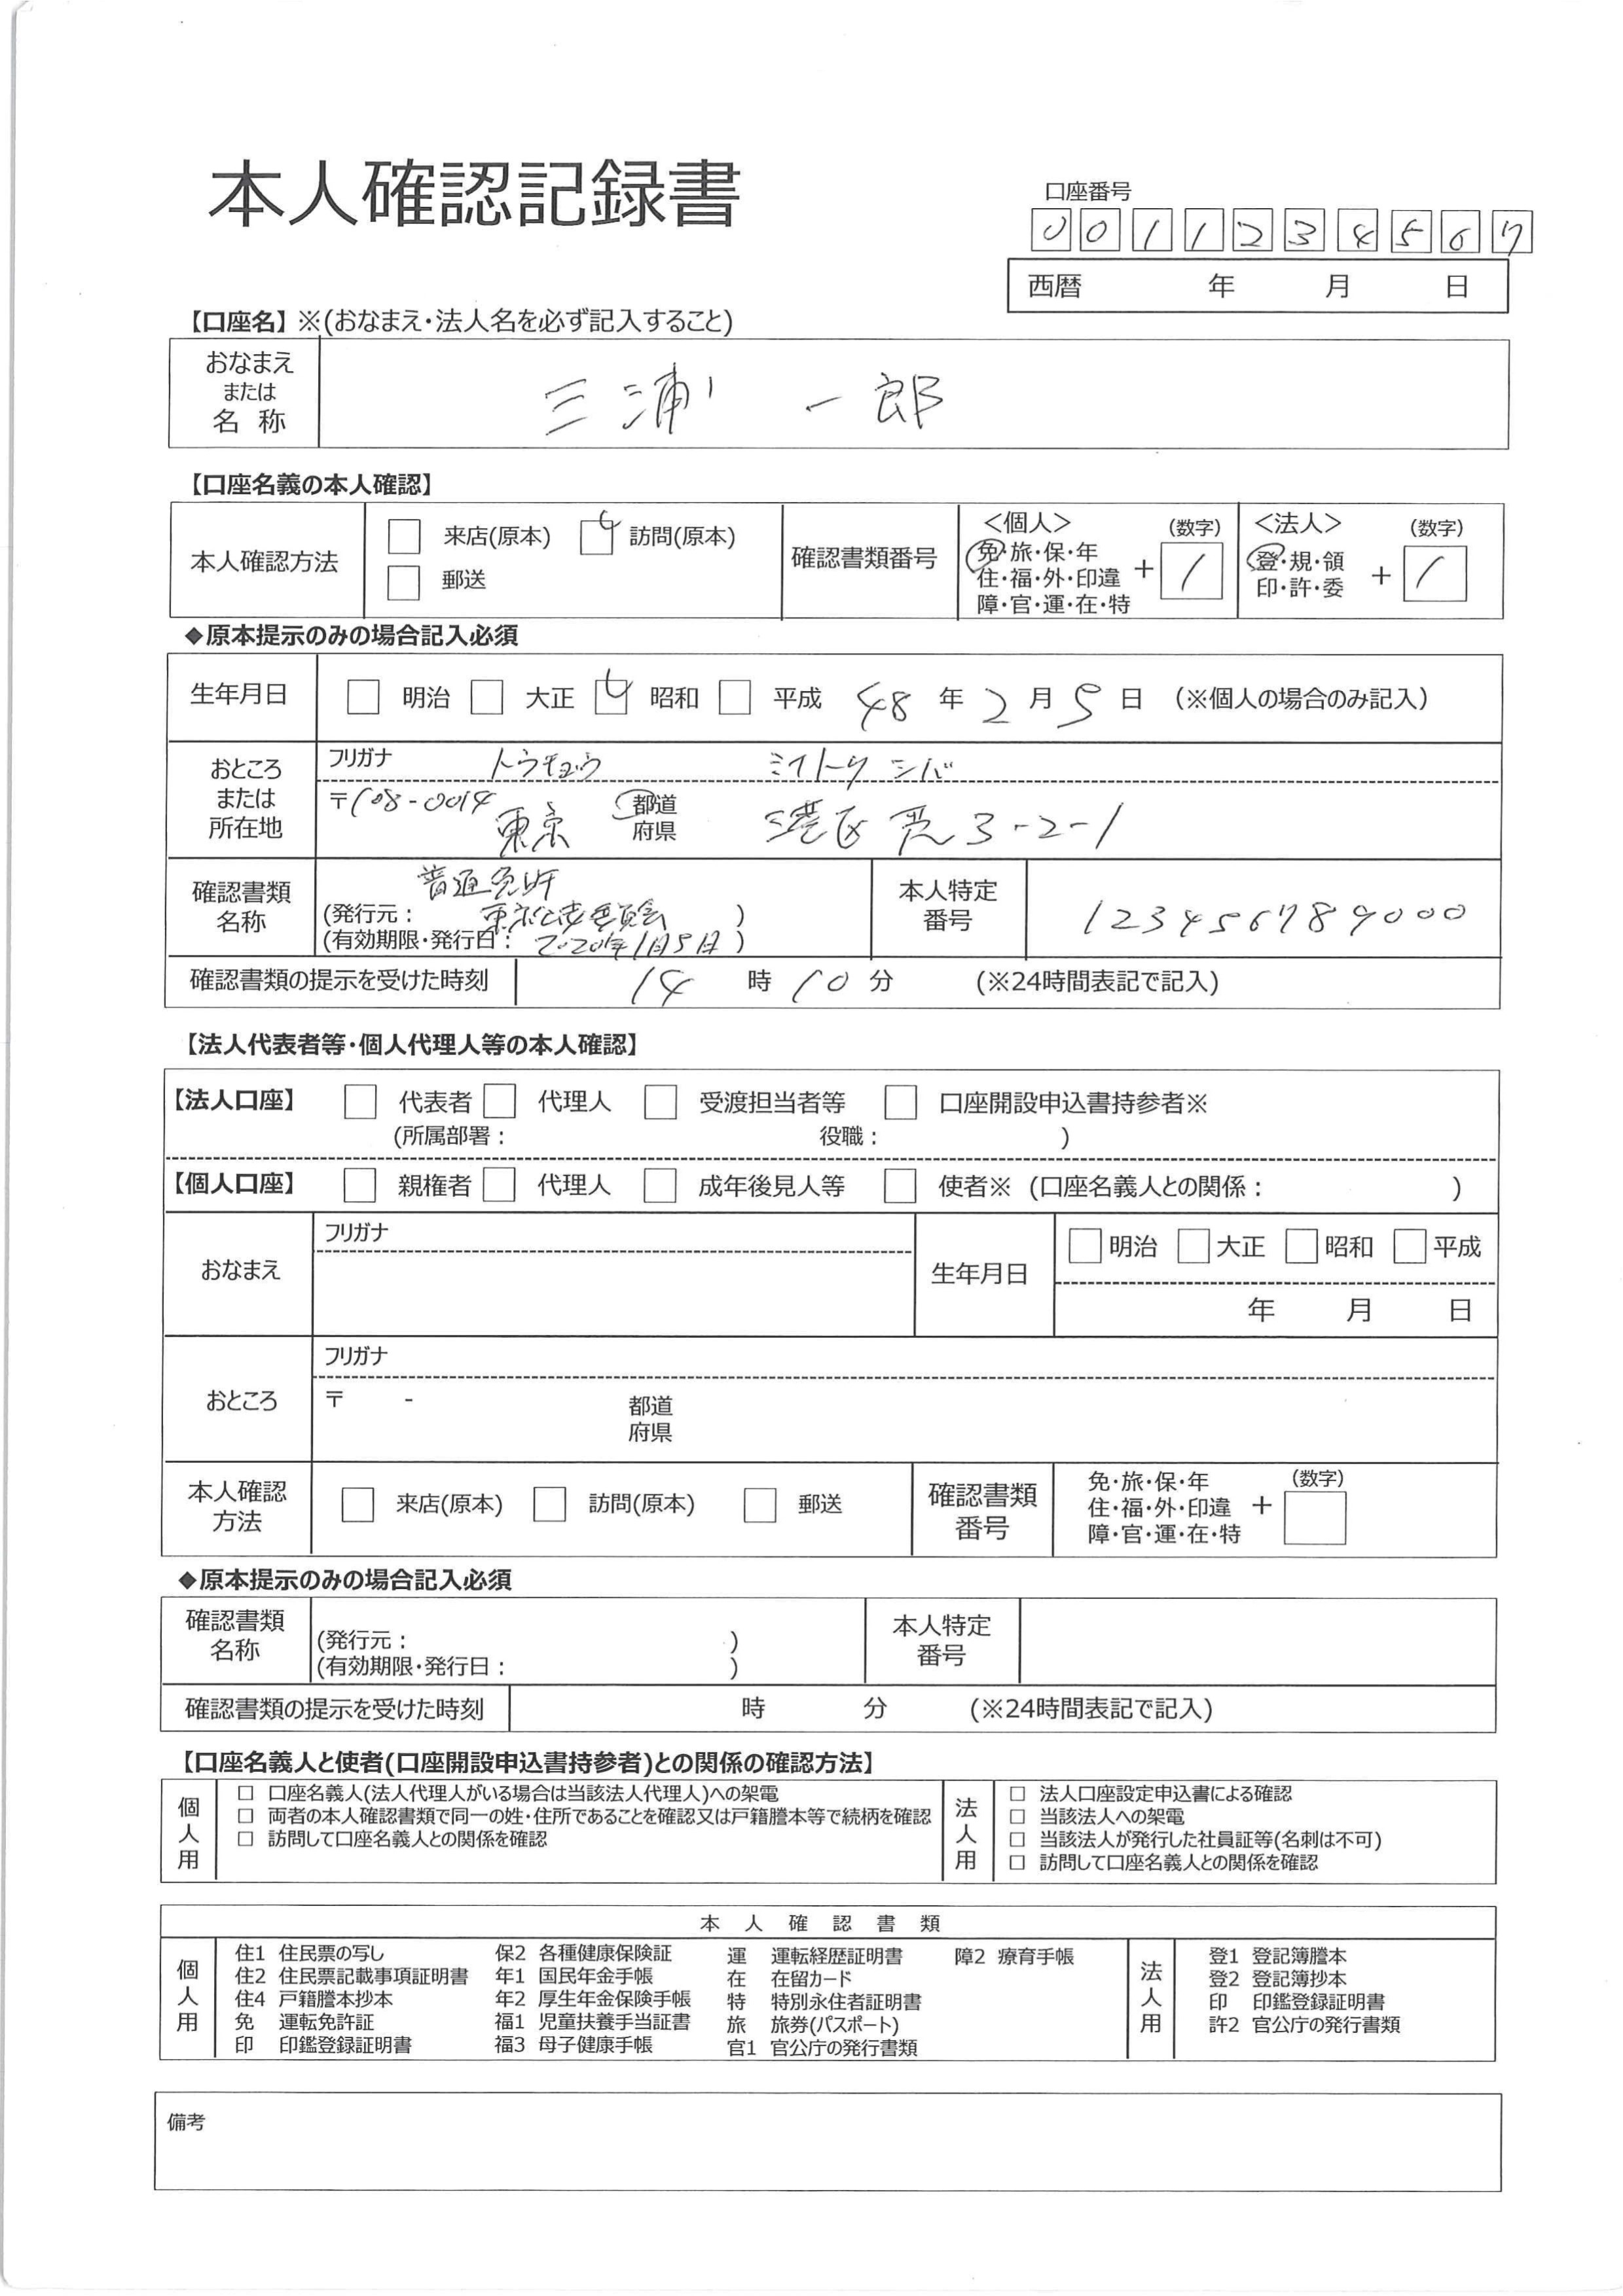 本人確認記録書
口座番号
0011234567
西暦 年 月 日
【口座名】※(おなまえ・法人名を必ず記入すること)
おなまえ
または
名 称
三浦 一郎
【口座名義の本人確認】
本人確認方法
来店(原本) 訪問(原本)
郵送
確認書類番号
<個人> (数字)
免・旅・保・年
住・福・外・印違 + 1
障・官・運・在・特
<法人> (数字)
登・規・領
印・許・委 + 1
◆原本提示のみの場合記入必須
生年月日 明治 大正 昭和 平成 48 年 2 月 5 日 (※個人の場合のみ記入)
おところ
または
所在地
フリガナ トウキョウ ミナトク シバ
〒108-0014 東京 都道府県 港区芝3-2-1
確認書類
名称
普通免許
(発行元: 東京公安委員会 )
(有効期限・発行日: 2020年1月5日 )
本人特定
番号
123456789000
確認書類の提示を受けた時刻 14 時 10 分 (※24時間表記で記入)
【法人代表者等・個人代理人等の本人確認】
【法人口座】 代表者 代理人 受渡担当者等 口座開設申込書持参者※
(所属部署: 役職: )
【個人口座】 親権者 代理人 成年後見人等 使者※ (口座名義人との関係: )
おなまえ
フリガナ
生年月日
明治 大正 昭和 平成
年 月 日
おところ
フリガナ
〒 - 都道府県
本人確認
方法
来店(原本) 訪問(原本) 郵送
確認書類
番号
免・旅・保・年 (数字)
住・福・外・印違 +
障・官・運・在・特
◆原本提示のみの場合記入必須
確認書類
名称
(発行元: )
(有効期限・発行日: )
本人特定
番号
確認書類の提示を受けた時刻 時 分 (※24時間表記で記入)
【口座名義人と使者(口座開設申込書持参者)との関係の確認方法】
個人用
□ 口座名義人(法人代理人がいる場合は当該法人代理人)への架電
□ 両者の本人確認書類で同一の姓・住所であることを確認又は戸籍謄本等で続柄を確認
□ 訪問して口座名義人との関係を確認
法人用
□ 法人口座設定申込書による確認
□ 当該法人への架電
□ 当該法人が発行した社員証等(名刺は不可)
□ 訪問して口座名義人との関係を確認
本 人 確 認 書 類
個人用
住1 住民票の写し
住2 住民票記載事項証明書
住4 戸籍謄本抄本
免 運転免許証
印 印鑑登録証明書
保2 各種健康保険証
年1 国民年金手帳
年2 厚生年金保険手帳
福1 児童扶養手当証書
福3 母子健康手帳
運 運転経歴証明書
在 在留カード
特 特別永住者証明書
旅 旅券(パスポート)
官1 官公庁の発行書類
障2 療育手帳
法人用
登1 登記簿謄本
登2 登記簿抄本
印 印鑑登録証明書
許2 官公庁の発行書類
備考